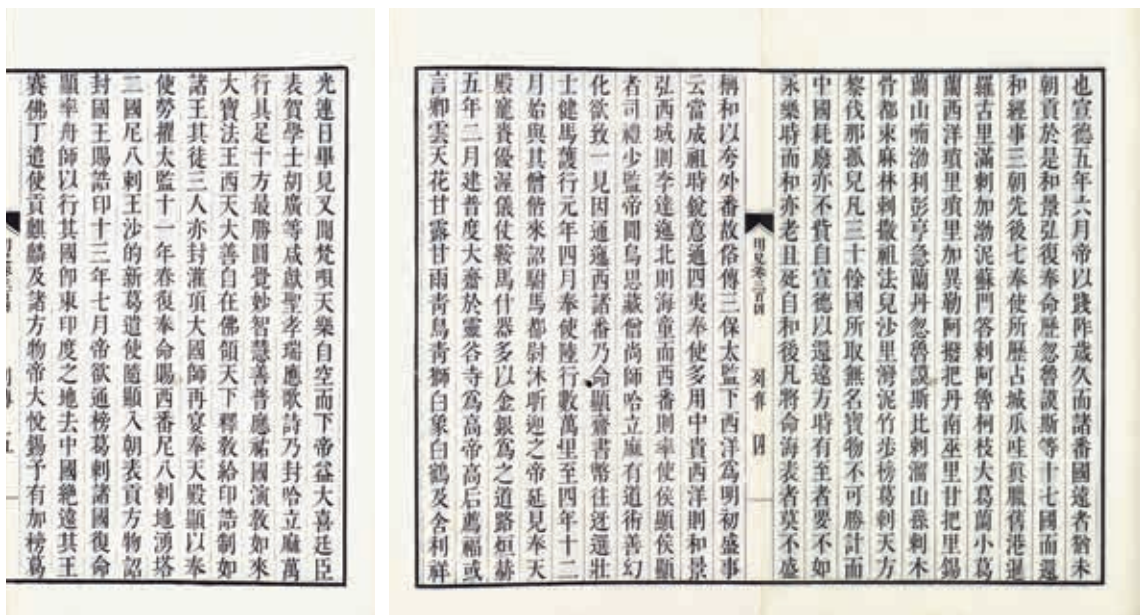 也宣德五年六月帝以踐阼歲久而諸番國遠者猶未
朝貢於是和景弘復奉命歷忽魯謨斯等十七國而還
和經事三朝先後七奉使所歷占城爪哇眞臘舊港暹
羅古里滿剌加渤泥蘇門答剌阿魯柯枝大葛蘭小葛
蘭西洋瑣里瑣里加異勒阿撥把丹南巫里甘把里錫
蘭山喃渤利彭亨急蘭丹忽魯謨斯比剌溜山孫剌木
骨都束麻林剌撒祖法兒沙里灣泥竹步榜葛剌天方
黎伐那孤兒凡三十餘國所取無名寶物不可勝計而
中國耗廢亦不貲自宣德以還遠方時有至者要不如
永樂時而和亦老且死自和後凡將命海表者莫不盛
明史卷三百四 列傳 四
稱和以夸外番故俗傳三保太監下西洋爲明初盛事
云當成祖時銳意通四夷奉使多用中貴西洋則和景
弘西域則李達迤北則海童而西番則率使侯顯侯顯
者司禮少監帝聞烏思藏僧尚師哈立麻有道術善幻
化欲致一見因通迤西諸番乃命顯齎書幣往迓選壯
士健馬護行元年四月奉使陸行數萬里至四年十二
月始與其僧偕來詔駙馬都尉沐昕迎之帝延見奉天
殿寵賚優渥儀仗鞍馬什器多以金銀爲之道路烜赫
五年二月建普度大齋於靈谷寺爲高帝高后薦福或
言卿雲天花甘露甘雨青鳥青獅白象白鶴及舍利祥
光連日畢見又聞梵唄天樂自空而下帝益大喜廷臣
表賀學士胡廣等咸獻聖孝瑞應歌詩乃封哈立麻萬
行具足十方最勝圓覺妙智慧善普應祐國演教如來
大寶法王西天大善自在佛領天下釋教給印誥制如
諸王其徒三人亦封灌頂大國師再宴奉天殿顯以奉
使勞擢太監十一年春復奉命賜西番尼八剌地湧塔
二國尼八剌王沙的新葛遣使隨顯入朝表貢方物詔
封國王賜誥印十三年七月帝欲通榜葛剌諸國復命
顯率舟師以行其國卽東印度之地去中國絕遠其王
賽佛丁遣使貢麒麟及諸方物帝大悅錫予有加榜葛